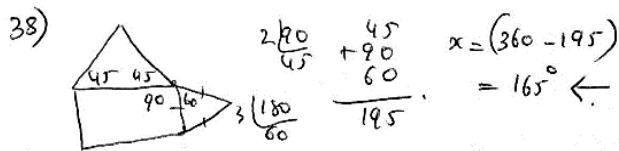 38)
45 45
90 60
2|90
45
3|180
60
45
+90
60
195
x = (360 - 195)
= 165° ←